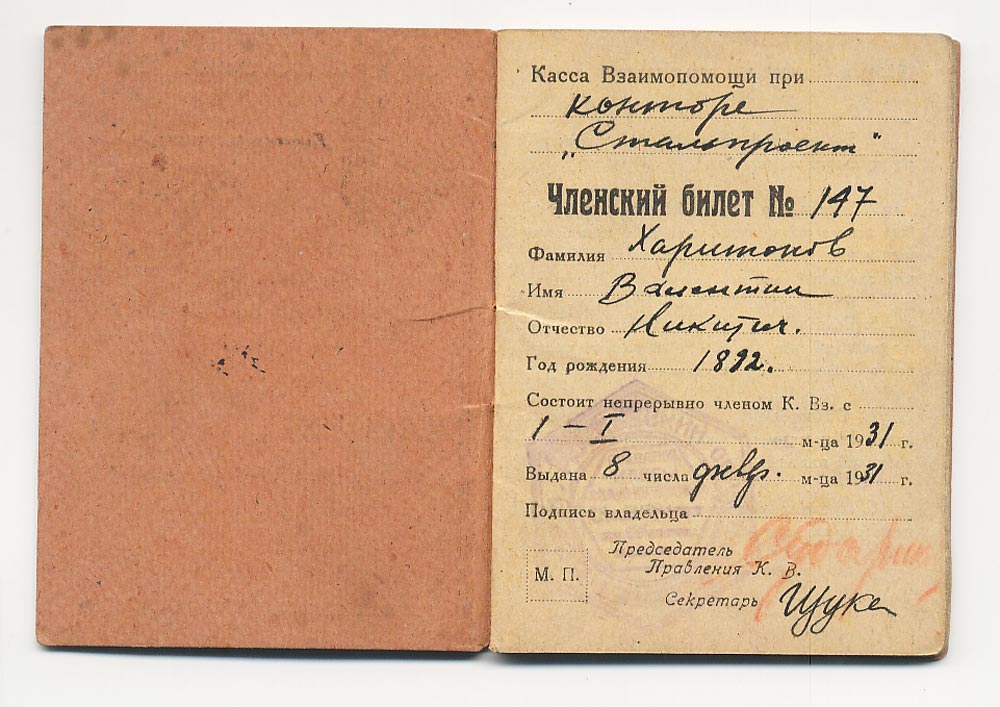 Касса Взаимопомощи при
конторе
„Стальпроект"
Членский билет № 147
Фамилия Харитонов
Имя Валентин
Отчество Никитич.
Год рождения 1892.
Состоит непрерывно членом К. Вз. с
1 – I м-ца 1931 г.
Выдана 8 числа февр. м-ца 1931 г.
Подпись владельца
Председатель
Правления К. В.
М. П.
Секретарь Щука